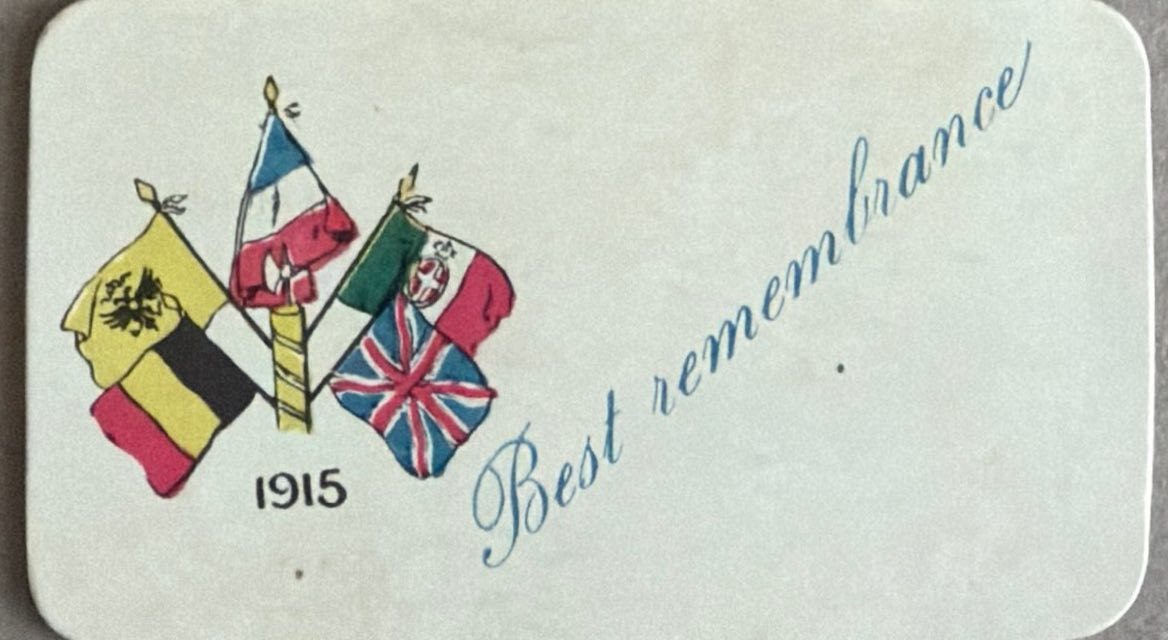 1915
Best remembrance